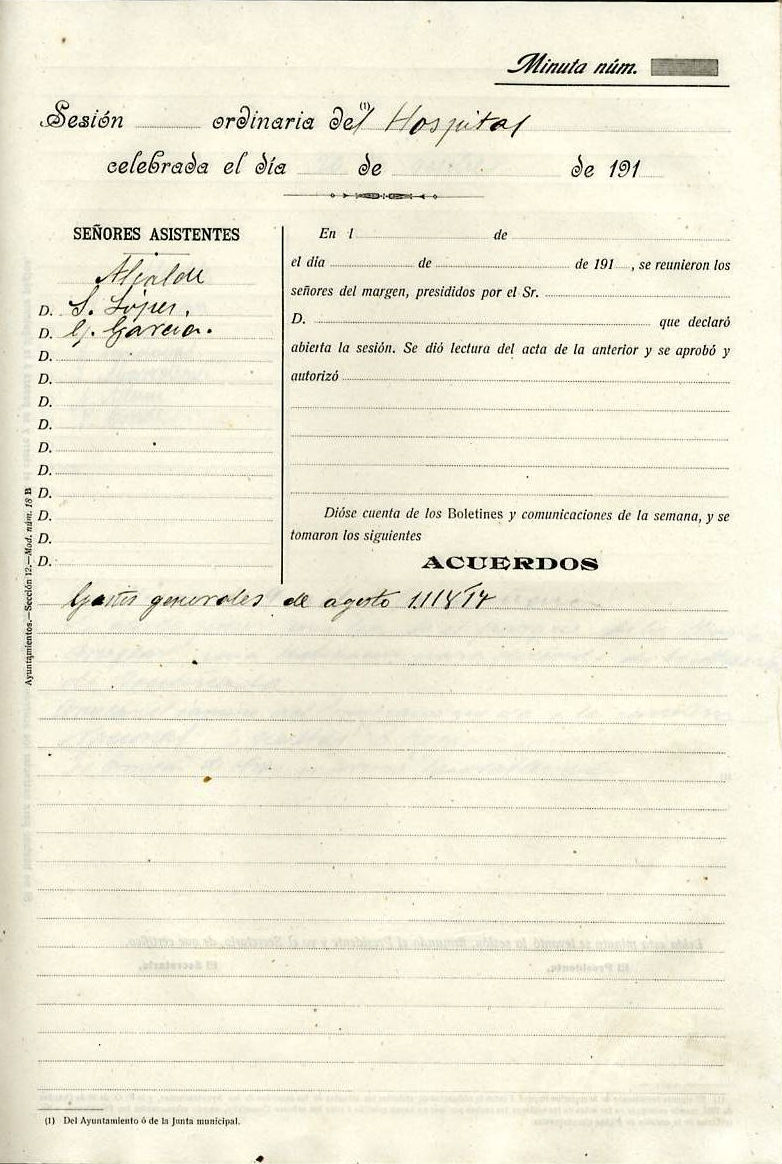 Minuta núm.
Sesión ordinaria del (1) Hospital
celebrada el día de de 191
SEÑORES ASISTENTES
Alcalde
D. S. López.
D. G. García.
D.
D.
D.
D.
D.
D.
D.
D.
D.
D.
En l de
el día de de 191 , se reunieron los
señores del margen, presididos por el Sr.
D. que declaró
abierta la sesión. Se dió lectura del acta de la anterior y se aprobó y
autorizó
Dióse cuenta de los Boletines y comunicaciones de la semana, y se
tomaron los siguientes
ACUERDOS
Gastos generales de agosto
Ayuntamientos.—Sección 12.—Mod. núm. 18 B
(1) Del Ayuntamiento ó de la Junta municipal.